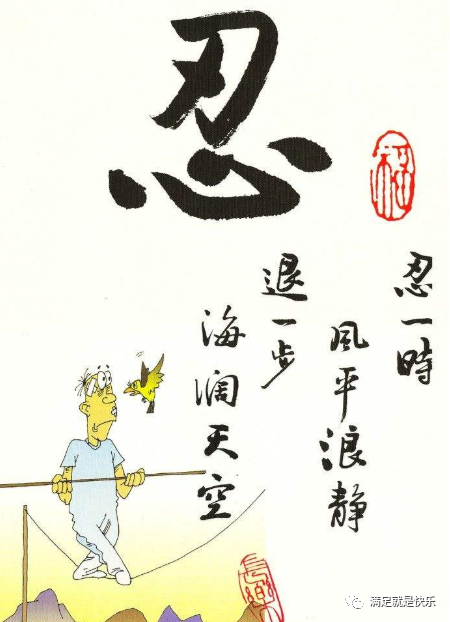 忍
忍一時
風平浪静
退一步
海阔天空
满足就是快乐